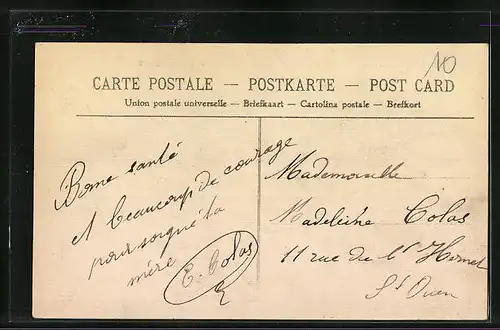 10
CARTE POSTALE — POSTKARTE — POST CARD
Union postale universelle — Briefkaart — Cartolina postale — Brefkort
Bonne santé
et beaucoup de courage
pour soigné ta
mère
E. Colas
Mademoiselle
Madeleine Colas
11 rue de l'
St Ouen